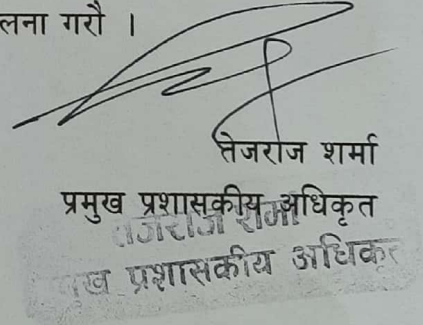 लना गरौ ।
तेजराज शर्मा
प्रमुख प्रशासकीय अधिकृत
तेजराज शर्मा
मुख प्रशासकीय अधिकृत